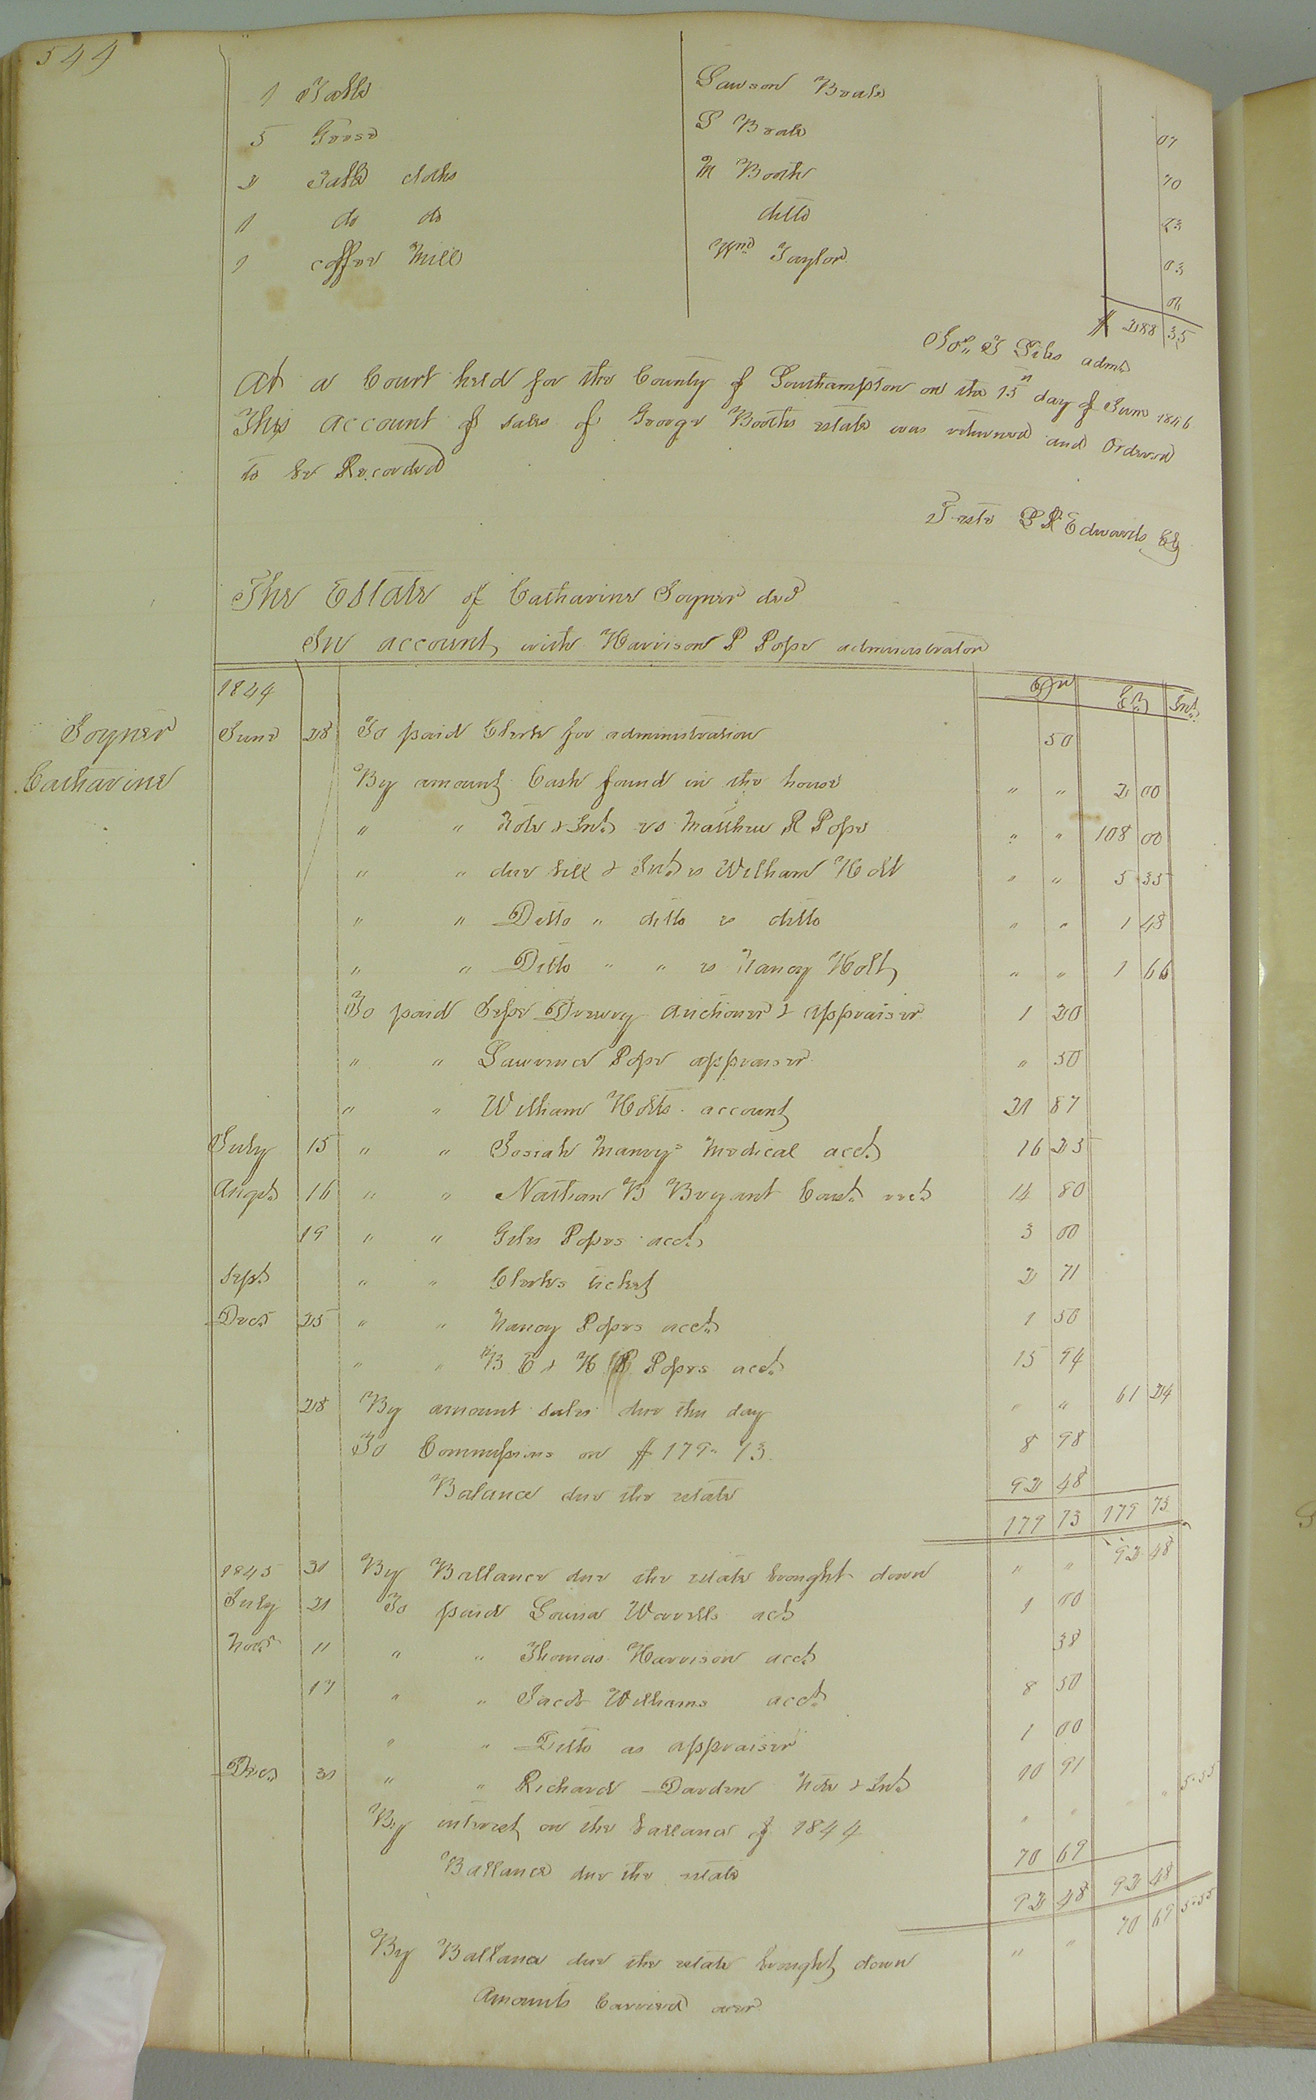 544
1 Table Lawson Beale 07
5 Geese S Beale 70
2 Table cloths M Booth 23
1 do do ditto 03
1 coffee Mill Wm Taylor 01
$ 288 35
Jos: T Liles admr
At a Court held for the County of Southampton on the 15th day of June 1846
This account of sales of George Booths estate was returned and Ordered
to be Recorded
Teste L R Edwards Clk
The Estate of Catharine Joyner decd
In account with Harrison P Pope administrator
1844 Dr Cr Int
Joyner Catharine
June 28 To paid Clerk for administration 50
By amount Cash found in the house " " 2 00
" " Note & Int. vs Matthew R Pope " " 108 00
" " due bill & Int. vs William Holt " " 5 35
" " Ditto " ditto vs ditto " " 1 48
" " Ditto " " vs Nancy Holt " " 1 66
To paid Jesse Drewry auctioner & appraiser 1 20
" " Lawrence Pope appraiser " 50
" " William Holts account 21 87
July 15 " " Josiah Manry Medical acct. 16 25
Augst. 16 " " Nathan B Bryant Const. acct. 14 80
19 " " Giles Popes acct. 3 00
Sept. " " Clerks ticket 2 71
Decr 25 " " Nancy Popes acct. 1 50
" " B E & H P Popes acct. 15 94
28 By amount sales due this day " " 61 24
To Commissions on $179" 73 8 98
Balance due the estate 92 48
179 73 179 73
1845 31 By Ballance due the estate brought down " " 92 48
July 21 To paid Louisa Worrells act 1 00
Novr 11 " " Thomas Harrison acct. 38
17 " " Jacob Williams acct. 8 50
" " Ditto as appraiser 1 00
Decr 31 " " Richard Darden Note & Int. 10 91
By interest on the ballance of 1844 " " " " 5.55
Ballance due the estate 70 69
92 48 92 48
By Ballance due the estate brought down " " 70 69 5.55
Amounts Carried over